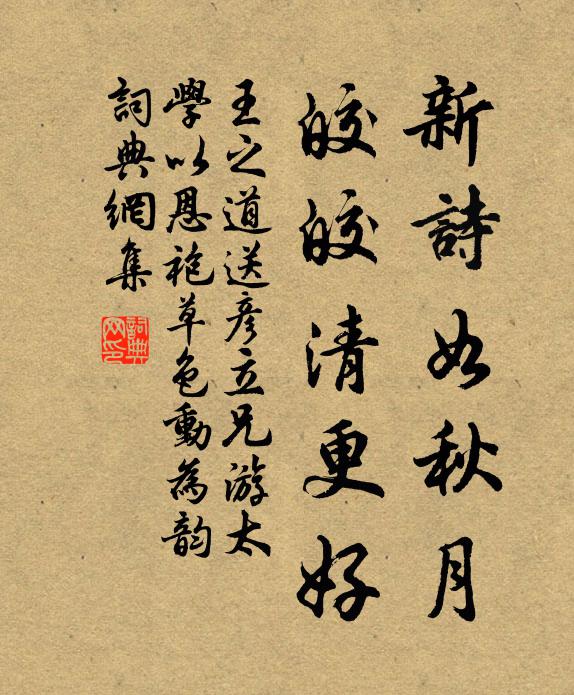 新詩如秋月
皎皎清更好
王之道送彥立兄游太
學以恩袍草色動為韵
詞典網集
詞典
网印